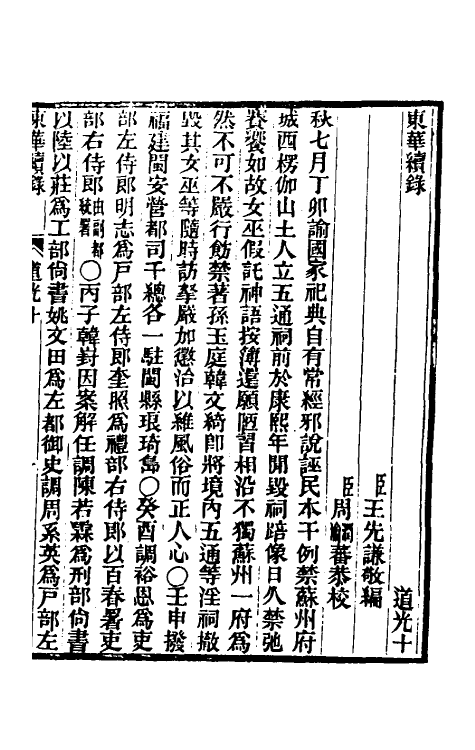 東華續錄
道光十
臣王先謙敬編
臣周𤅢蕃恭校
秋七月丁卯諭國家祀典自有常經邪說誣民本干例禁蘇州府
城西楞伽山土人立五通祠前於康熙年間毀祠踣像日久禁弛
饗饗如故女巫假託神語按簿還願陋習相沿不獨蘇州一府爲
然不可不嚴行飭禁著孫玉庭韓文綺卽將境內五通等淫祠撤
毀其女巫等隨時訪拏嚴加懲治以維風俗而正人心〇壬申撥
福建閩安營都司千總各一駐閩縣琅琦島〇癸酉調裕恩爲吏
部左侍郞明志爲戶部左侍郞奎照爲禮部右侍郞以百春署吏
部右侍郞由副都統署〇丙子韓崶因案解任調陳若霖爲刑部尙書
以陸以莊爲工部尙書姚文田爲左都御史調周系英爲戶部左
東華續錄 道光十